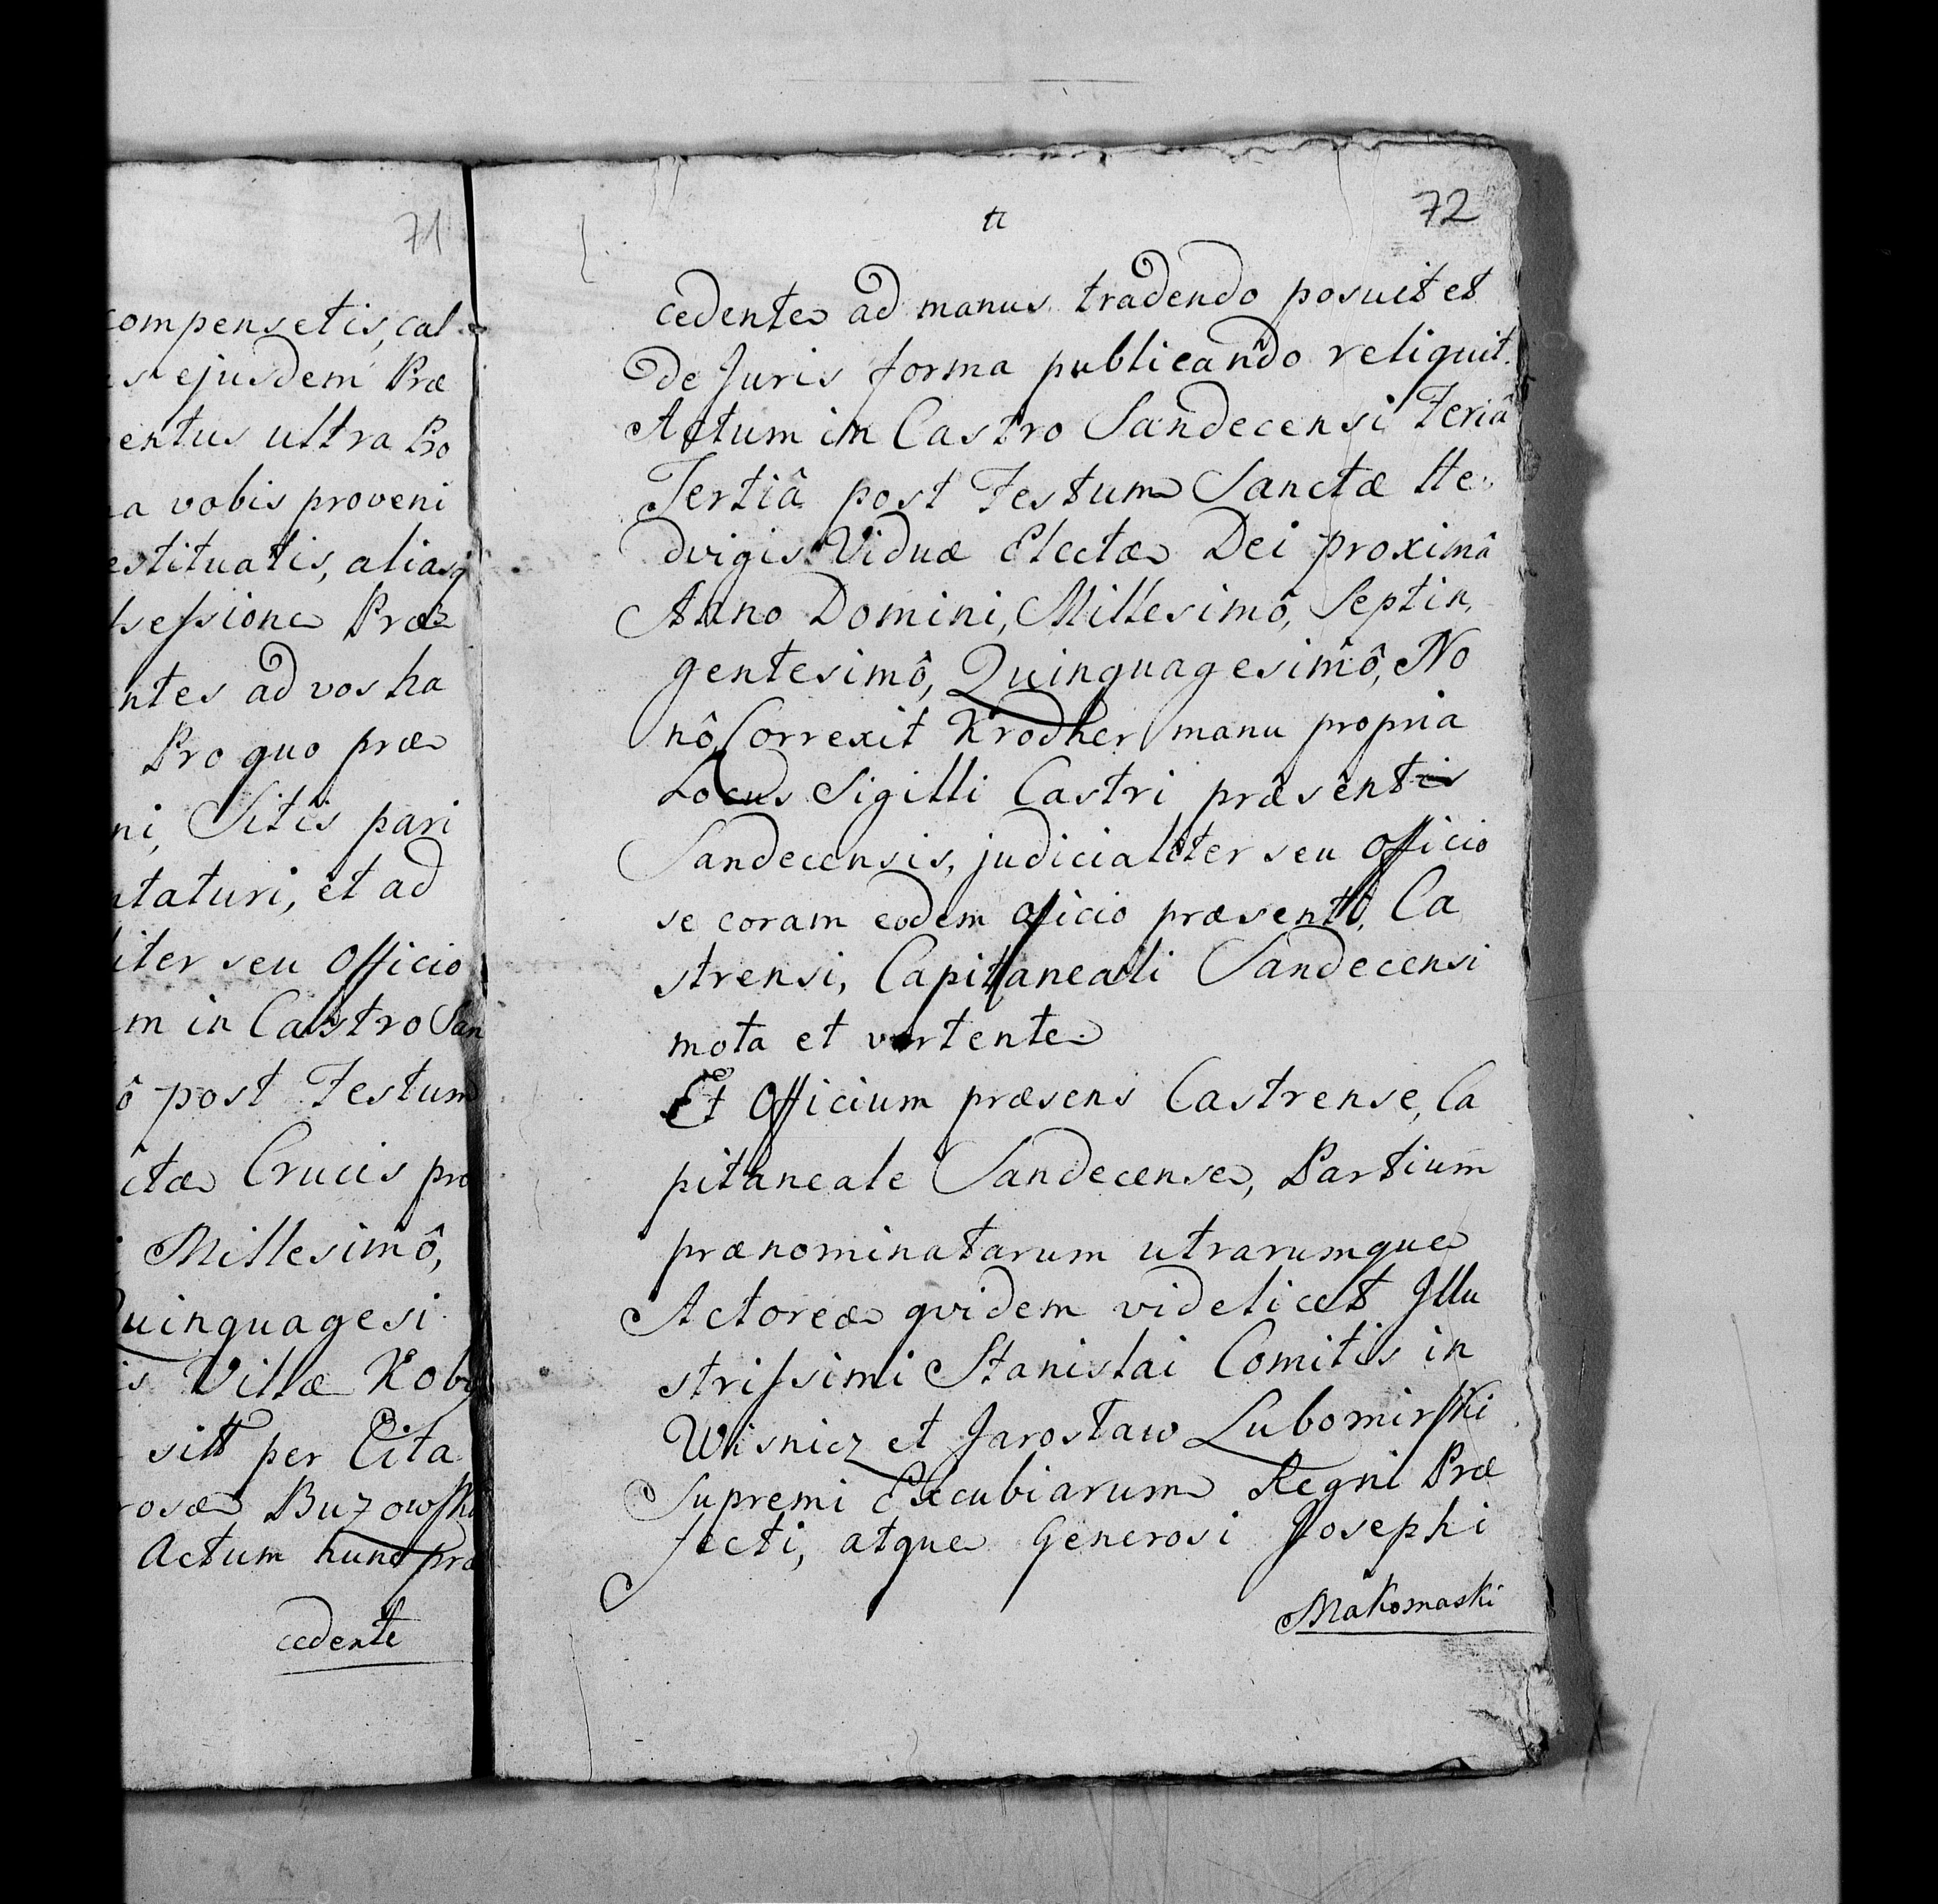 71
compensetis, cal
ejusdem Præ
entus ultra Pro
a vobis proveni
estituatis, aliasq
sessione Præ
ntes ad vos ha
Pro quo præ
ni, Sitis pari
ntaturi, et ad
iter seu Officio
m in Castro San
ô post Festum
ctæ Crucis pro
Millesimô,
Quinquagesi
is Villæ Kob
sitt per Cita
rosæ Buzowsk
Actum hunc præ
cedente
72
cedente ad manus tradendo posuit et
de Juris forma publicando reliquit.
Actum in Castro Sandecensi Feriâ
Tertiâ post Festum Sanctæ He
dvigis Viduæ Electæ Dei proximâ
Anno Domini, Millesimô, Septin,
gentesimô, Quinquagesimô, No
nô Correxit Krodher manu propria
Locus Sigilli Castri præsentis
Sandecensis, judicialiter seu Officio
se coram eodem oficio præsenti, Ca
strensi, Capitaneali Sandecensi
mota et vertente
Et Officium præsens Castrense, Ca
pitaneale Sandecense, Partium
prænominatarum utrarumque
Actoreæ qvidem videlicet Illu
strissimi Stanislai Comitis in
Wisnicz et Jarosław Lubomirski
Supremi Excubiarum Regni Præ
fecti, atque Generosi Josephi
Makomaski